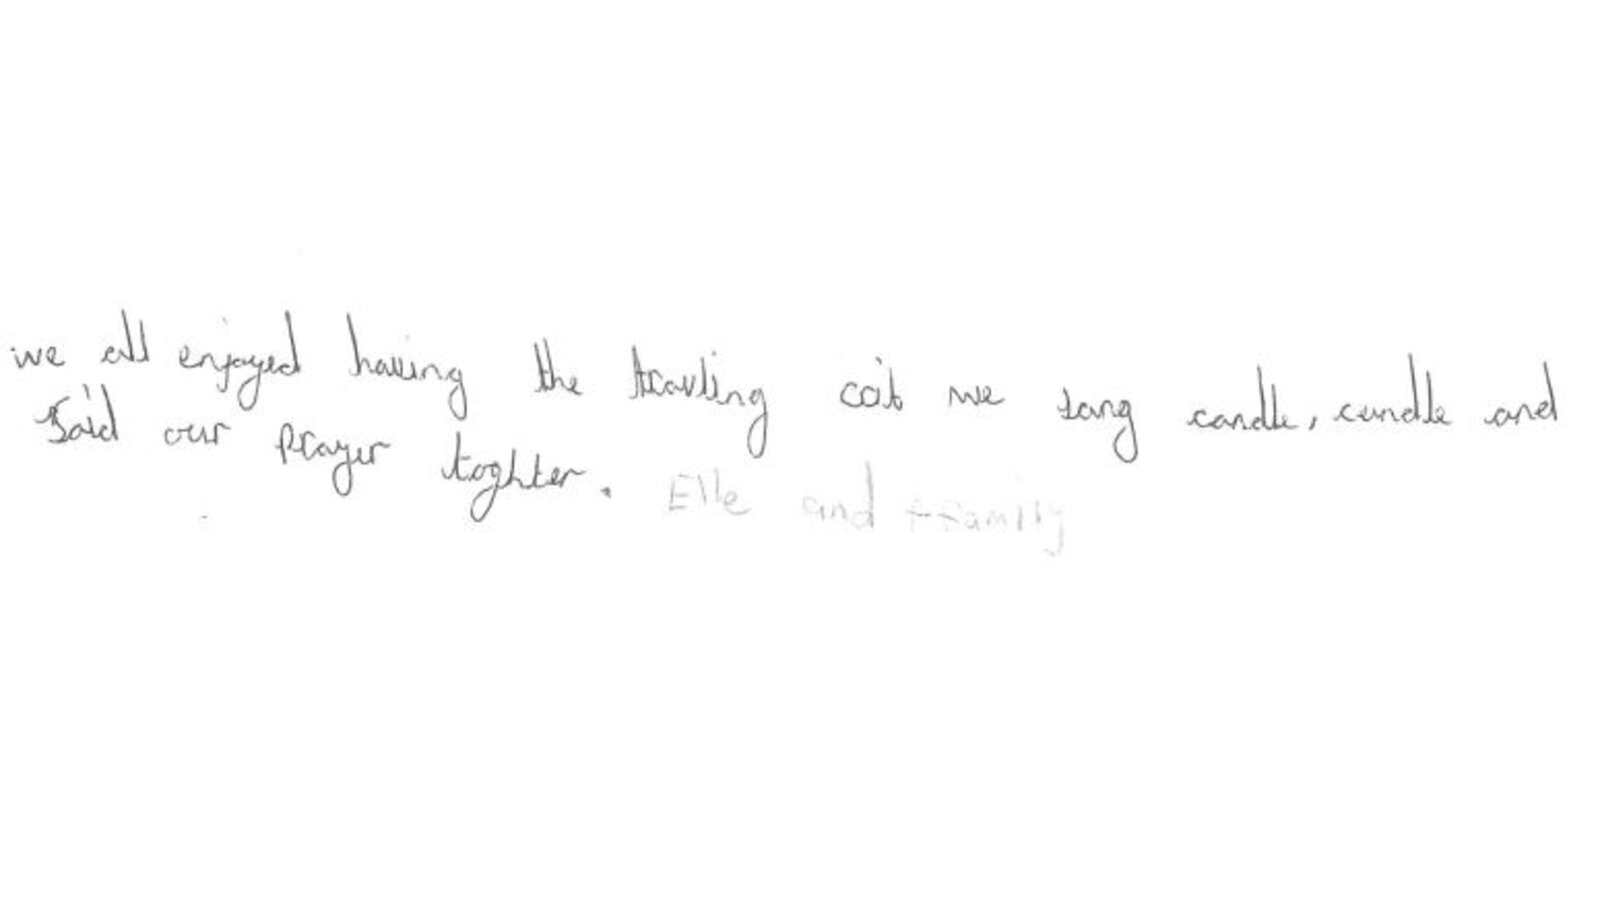 we all enjoyed having the travling coib we sang candle, candle and
Said our prayer toghter. Elle and family